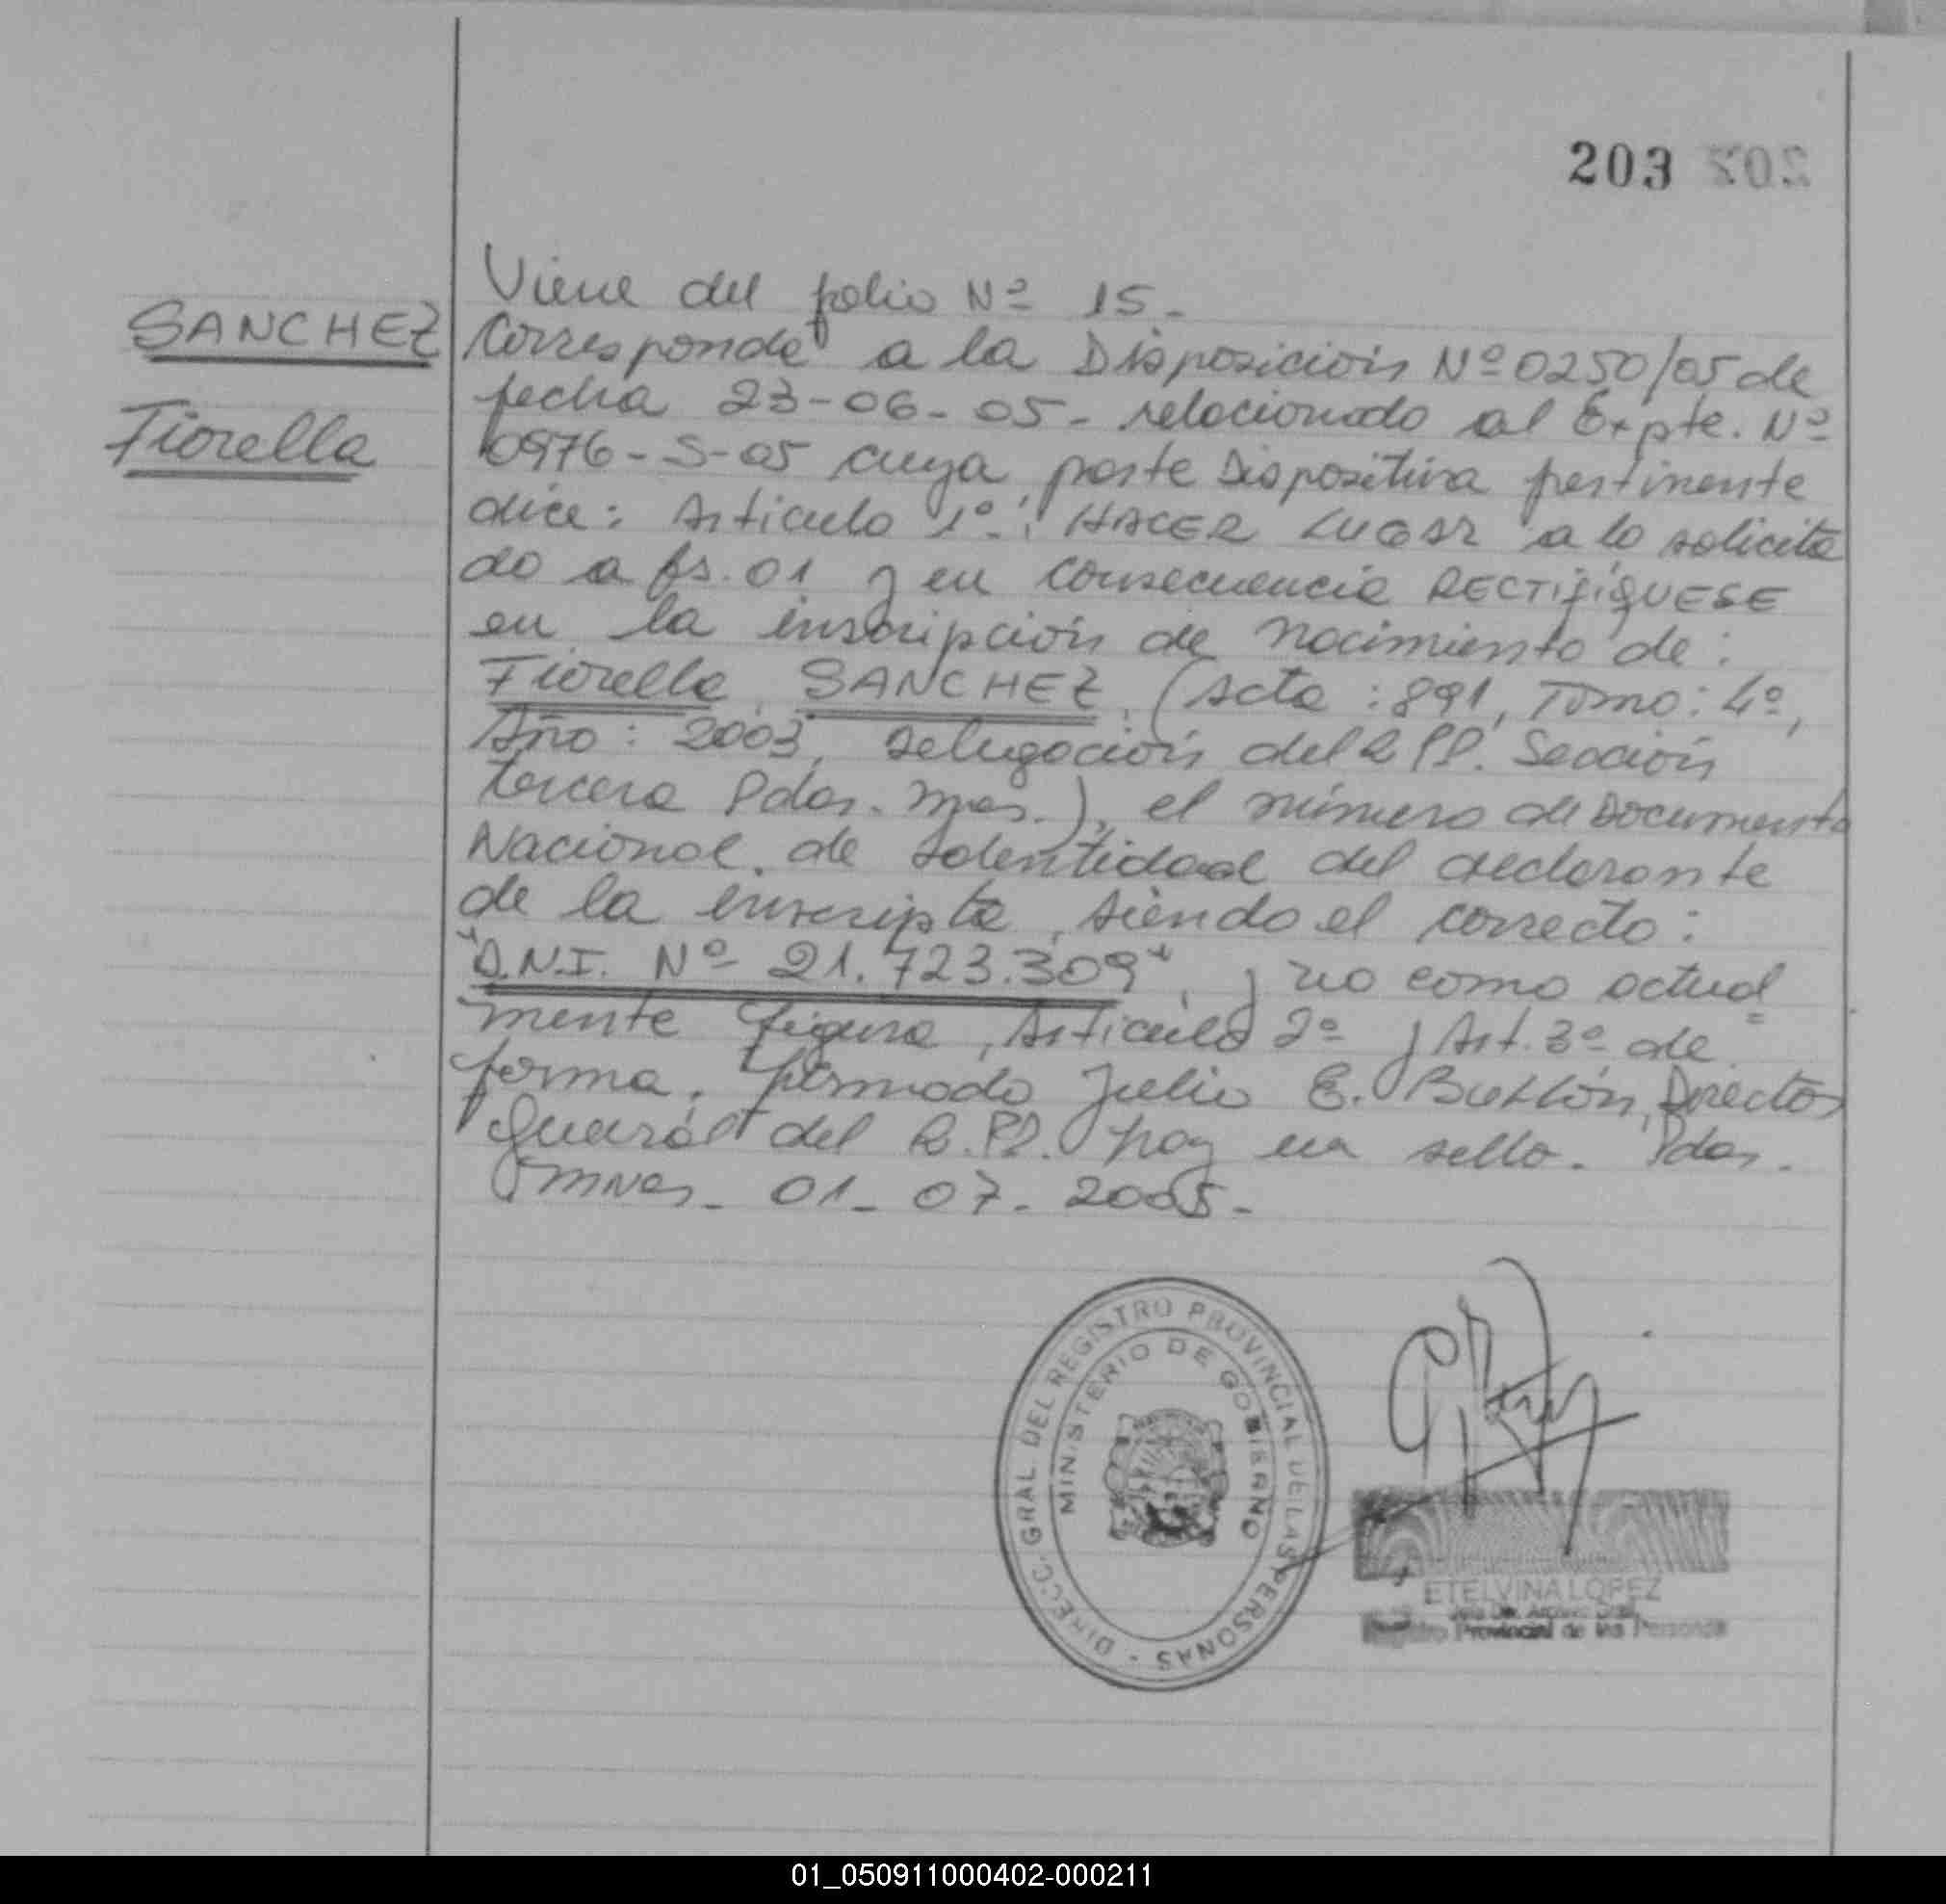 203 202
Viene del folio Nº 15.-
SANCHEZ
Fiorella
Corresponde a la Disposición Nº 0250/05 de
fecha 23-06-05- relacionado al Expte. Nº
0976-S-05 cuya parte Dispositiva pertinente
dice: Articulo 1º: HACER LUGAR a lo solicita
do a fs. 01 y en consecuencia RECTIFIQUESE
en la inscripción de nacimiento de:
Fiorella SANCHEZ, (Acta: 891, Tomo: 4º,
Año: 2003, Delegación del R.PP. Sección
tercera Pdas. Mnes.), el número de Documento
Nacional de Identidad del declarante
de la inscripta, siendo el correcto:
"D.N.I. Nº 21.723.309", y no como actual
mente figura, Articulo 2º y Art. 3º de
forma. Firmado Julio E. Director
General del R.PP. hay un sello. Pdas.
Mnes.- 01-07-2005.-
DIRECC. GRAL. DEL REGISTRO PROVINCIAL DE LAS PERSONAS -
MINISTERIO DE GOBIERNO
ETELVINA LOPEZ
Provincial de las Personas
01_050911000402-000211